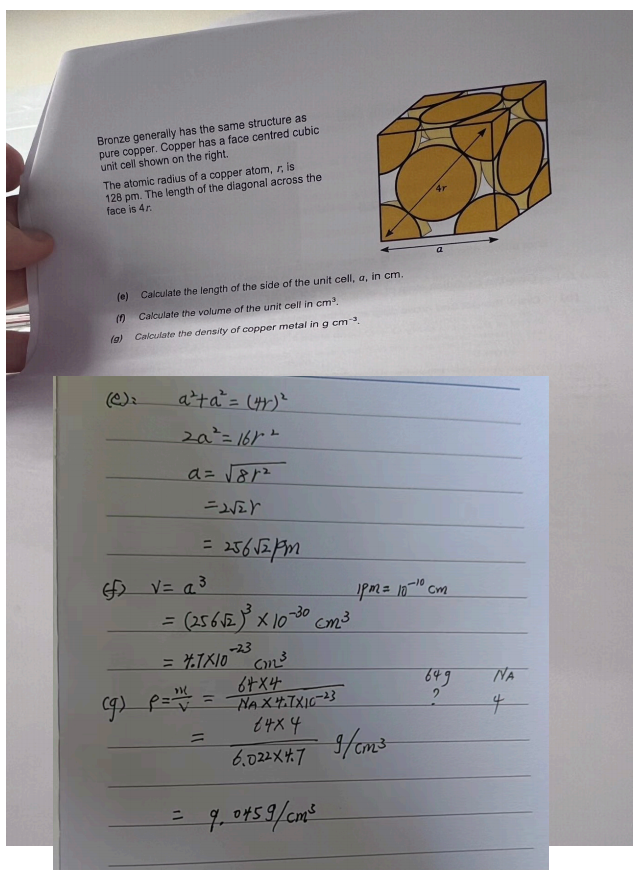 Bronze generally has the same structure as
pure copper. Copper has a face centred cubic
unit cell shown on the right.
The atomic radius of a copper atom, r, is
128 pm. The length of the diagonal across the
face is 4r.
4r
a
(e) Calculate the length of the side of the unit cell, a, in cm.
(f) Calculate the volume of the unit cell in cm³.
(g) Calculate the density of copper metal in g cm⁻³.
(e): a²+a² = (4r)²
2a² = 16r²
a = √8r²
= 2√2r
= 256√2pm
(f) V = a³ 1pm = 10⁻¹⁰ cm
= (256√2)³ × 10⁻³⁰ cm³
= 4.7×10⁻²³ cm³
(g) ρ = m/V = 64×4 / NA×4.7×10⁻²³ 64g NA
? 4
= 64×4 / 6.022×4.7 g/cm³
= 9.045g/cm³